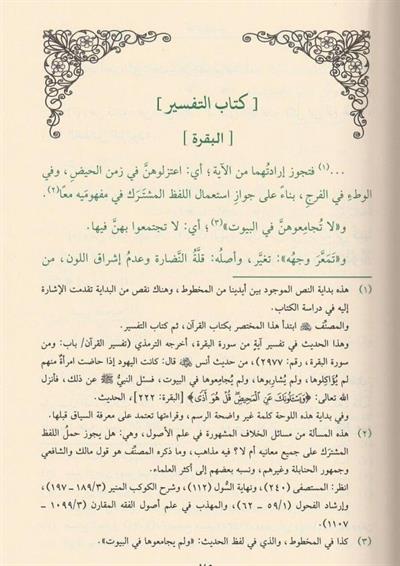 [ كتاب التفسير ]
[ البقرة ]
...(١) فتجوز إرادتُهما من الآية؛ أي: اعتزلوهنَّ في زمن الحيضِ، وفي
الوطءِ في الفرجِ، بناءً على جوازِ استعمال اللفظ المشتَرَك في مفهوميَه معًا(٢).
و«لا تُجامِعوهنَّ في البيوت»(٣)؛ أي: لا تجتمعوا بهنَّ فيها.
و«تَمَعَّرَ وجهُه»: تغيَّر، وأصلُه: قلَّةُ النَّضارة وعدمُ إشراق اللون، من
(١) هذه بداية النص الموجود بين أيدينا من المخطوط، وهناك نقص من البداية تقدمت الإشارة
إليه في دراسة الكتاب.
والمصنِّف ﷺ ابتدأ هذا المختصر بكتاب القرآن، ثم كتاب التفسير.
وهذا الحديث في تفسير آيةٍ من سورة البقرة، أخرجه الترمذي (تفسير القرآن/ باب: ومن
سورة البقرة، رقم: ٢٩٧٧)، من حديث أنس ﷺ قال: كانت اليهود إذا حاضت امرأةٌ منهم
لم يُؤَاكِلوها، ولم يُشارِبوها، ولم يُجامِعوها في البيوت، فسئل النبيُّ ﷺ عن ذلك، فأنزل
الله تعالى: ﴿وَيَسْـَٔلُونَكَ عَنِ ٱلْمَحِيضِ قُلْ هُوَ أَذًى﴾ [البقرة: ٢٢٢]، الحديث.
وفي بداية هذه اللوحة كلمة غير واضحة الرسم، وقراءتها تعتمد على معرفة السياق قبلها.
(٢) هذه المسألة من مسائل الخلاف المشهورة في علم الأصول، وهي: هل يجوز حملُ اللفظ
المشترَك على جميع معانيه أم لا؟ فيه مذاهب، وما ذكره المصنِّف هو قول مالك والشافعي
وجمهور الحنابلة وغيرهم، ونسبه بعضهم إلى أكثر العلماء.
انظر: المستصفى (٢٤٠)، ونهاية السُّول (١١٢)، وشرح الكوكب المنير (٣/١٨٩ - ١٩٧)،
وإرشاد الفحول (١/٥٩ - ٦٢)، والمهذب في علم أصول الفقه المقارن (٣/١٠٩٩ -
١١٠٧).
(٣) كذا في المخطوط، والذي في لفظ الحديث: «ولم يجامعوها في البيوت».